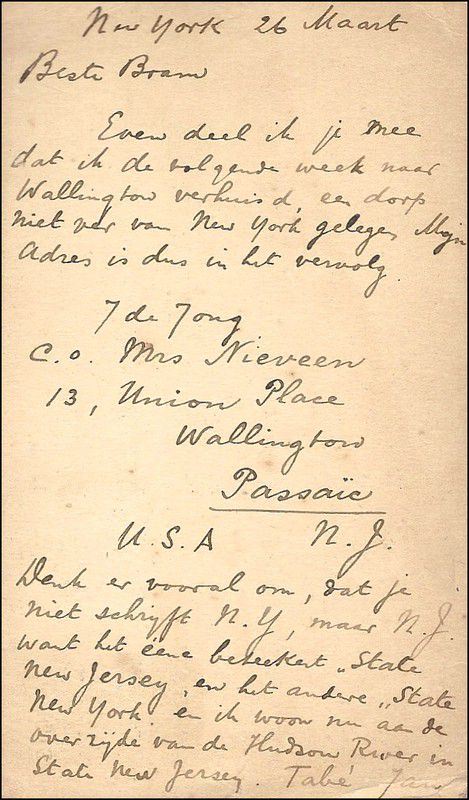 New York 26 Maart
Beste Bram
Even deel ik je mee
dat ik de volgende week naar
Wallington verhuisd, een dorp
niet ver van New York gelegen Mijn
Adres is dus in het vervolg.
J de Jong
C.o. Mrs Nieveen
13, Union Place
Wallington
Passaïc
U.S.A N.J.
Denk er vooral om, dat je
niet schryft N.Y, maar N.J.
want het eene beteekent „State
New Jersey, en het andere „State
New York. en ik woon nu aan de
overzijde van de Hudson River in
State New Jersey. Tabé Jan